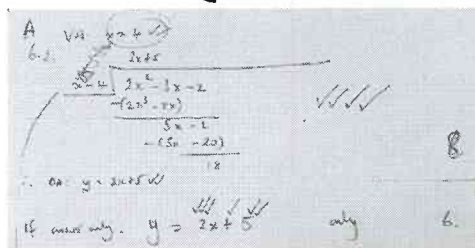 A
VA x = 4 ✓✓
6.2. 2x+5
x-4 | 2x² - 3x - 2
-(2x² - 8x)
5x - 2
-(5x - 20)
18
✓✓✓✓
8
∴ OA: y = 2x+5 ✓✓
If answer only. y = 2x + 5 only 6.